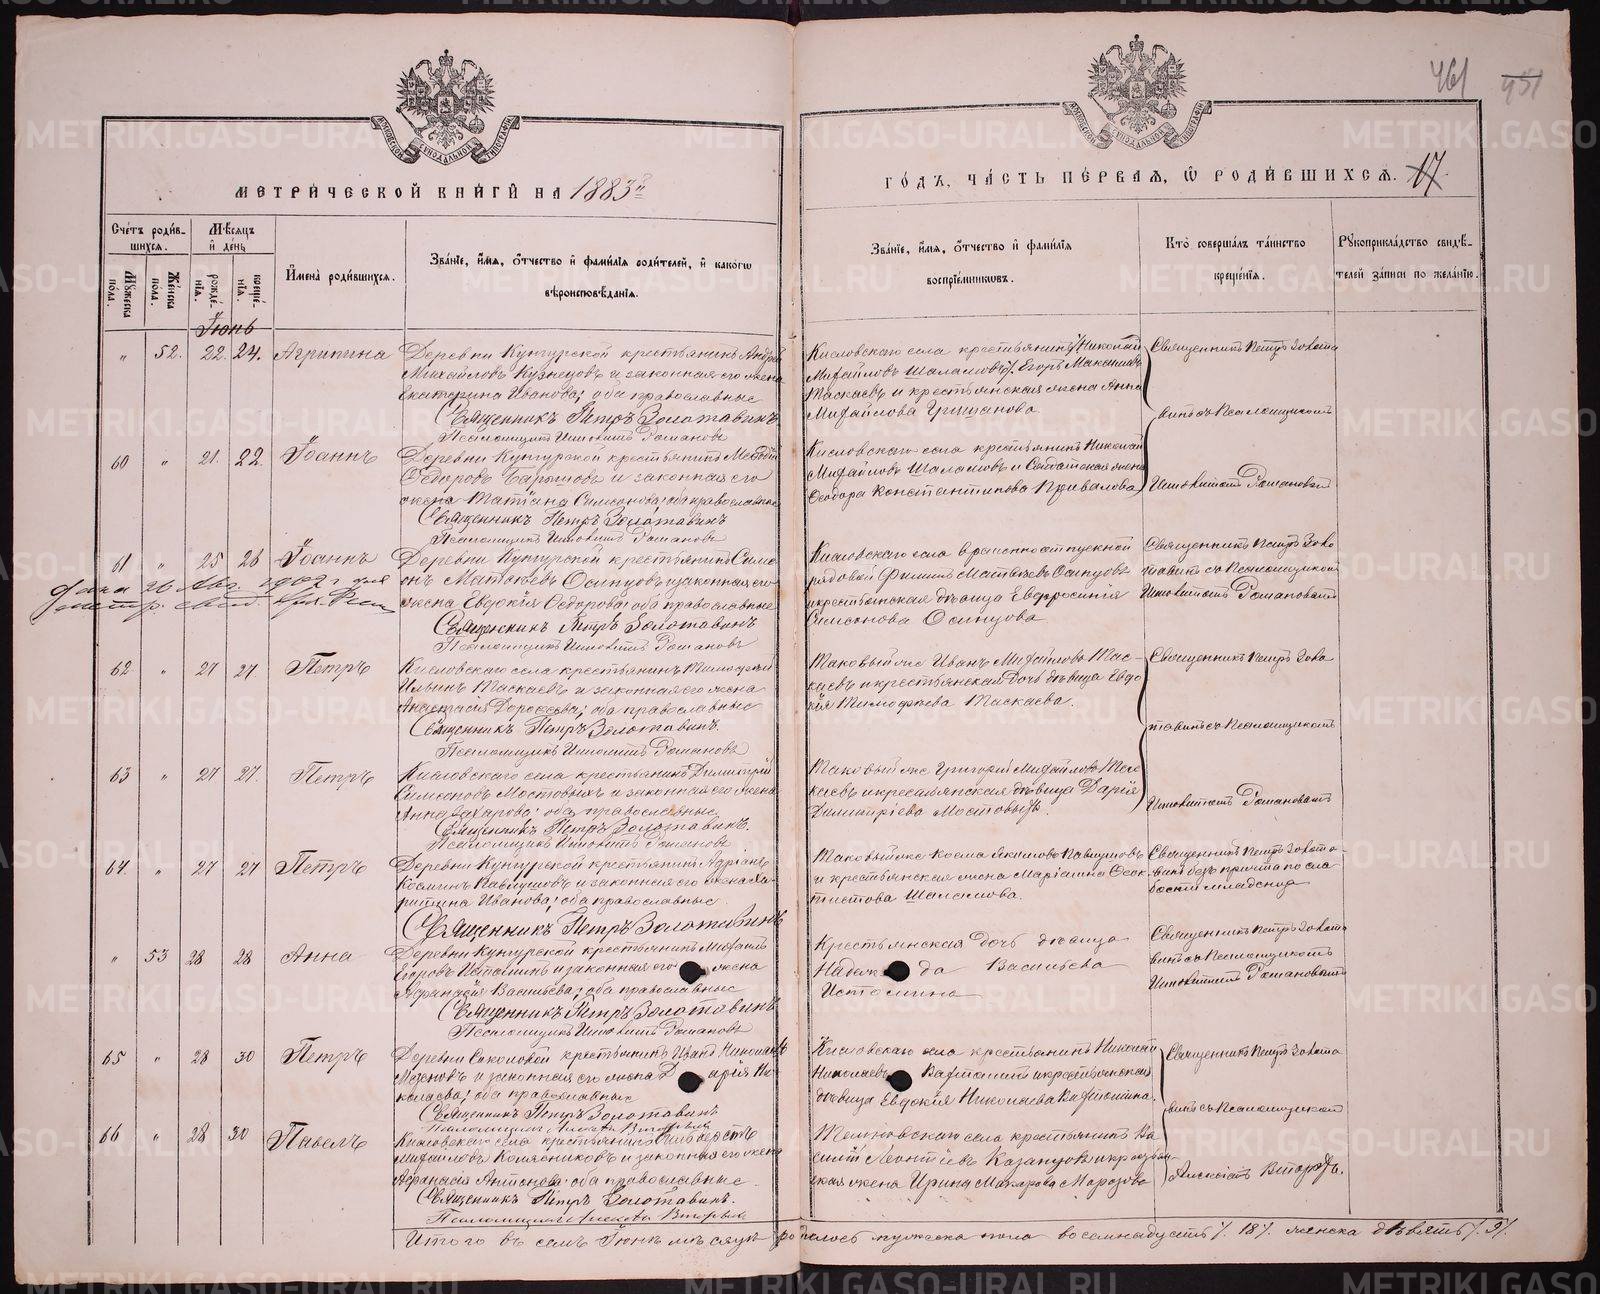 461 451
МЕТРИЧЕСКОЙ КНИГИ НА 1883й
ГОДЪ, ЧАСТЬ ПЕРВАЯ, Ѡ РОДИВШИХСЯ. 17
Счетъ родив-
шихся.
Мѣсяцъ
и день
Мужеска пола.
Женска пола.
рожде-
нія.
креще-
нія.
Имена родившихся.
Званіе, имя, отчество и фамилія родителей, и какогѡ
вѣроисповѣданія.
Званіе, имя, отчество и фамилія
воспріемниковъ.
Кто совершалъ таинство
крещенія.
Рукоприкладство свидѣ-
телей записи по желанію.
Іюнь
„ 52. 22. 24. Агрипина
Деревни Кунгурской крестьянинъ Андрей
Михайловъ Кузнецовъ и законная его жена
Екатерина Иванова; оба православные
Священникъ Петръ Золотавинъ
Псаломщикъ Иполитъ Романовъ
Кисловскаго села крестьянинъ Николай
Михайловъ Шаламовъ Егоръ Максимовъ
Таскаевъ и крестьянская жена Анна
Михайлова Гришанова.
Священникъ Петръ Золота
винъ съ Псаломщикомъ
Иполитомъ Романовымъ
60 „ 21. 22. Іоаннъ
Деревни Кунгурской крестьянинъ
Ѳедоровъ и законная его
жена Татіана Симонова; оба православные
Священникъ Петръ Золотавинъ
Псаломщикъ Иполитъ Романовъ
Кисловскаго села крестьянинъ Николай
Михайловъ Шаламовъ и Солдатская жена
Ѳеодора Константинова Привалова
61 „ 25 26 Іоаннъ
Деревни Кунгурской крестьянинъ Симе
онъ Матѳеевъ Осинцовъ и законная его
жена Евдокія Ѳедорова; оба православные
Священникъ Петръ Золотавинъ
Псаломщикъ Иполитъ Романовъ
Кисловскаго села временноотпускной
рядовой Филипъ Матвѣевъ Осинцовъ
и крестьянская дѣвица Евфросинія
Симонова Осинцова
Священникъ Петръ Золо
тавинъ съ Псаломщикомъ
Иполитомъ Романовымъ
62 „ 27 27. Петръ
Кисловскаго села крестьянинъ Тимофей
Ильинъ Таскаевъ и законная его жена
Анастасія Дороѳеева; оба православные
Священникъ Петръ Золотавинъ.
Псаломщикъ Иполитъ Романовъ
Таковый же Иванъ Михайловъ Тас-
каевъ и крестьянская дочь дѣвица Евдо
кія Тимофѣева Таскаева.
Священникъ Петръ Золо
тавинъ съ Псаломщикомъ
Иполитомъ Романовымъ
63 „ 27 27. Петръ
Кисловскаго села крестьянинъ Димитрій
Симеоновъ Мостовыхъ и законная его жена
Анна Захарова; оба православные
Священникъ Петръ Золотавинъ.
Псаломщикъ Иполитъ Романовъ
Таковый же Григорій Михайловъ Тас
каевъ и крестьянская дѣвица Дарія
Димитріева Мостовыхъ.
64. „ 27 27 Петръ
Деревни Кунгурской крестьянинъ Адріанъ
Косминъ Павлушовъ и законная его жена Ха-
ритина Иванова; оба православные
Священникъ Петръ Золотавинъ
Таковый же Косма Якимовъ Павлушовъ
и крестьянская жена Маріамна Ѳеок
тистова Шаламова.
Священникъ Петръ Золота-
винъ безъ причта по сла
бости младенца
„ 53 28 28 Анна
Деревни Кунгурской крестьянинъ Михаилъ
Егоровъ Истоминъ и законная его жена
Афанасія Васильева; оба православные
Священникъ Петръ Золотавинъ
Псаломщикъ Иполитъ Романовъ
Крестьянская дочь дѣвица
Надежда Васильева
Истомина
Священникъ Петръ Золота
винъ съ Псаломщикомъ
Иполитомъ Романовымъ
65 „ 28 30 Петръ
Деревни Соколовой крестьянинъ Иванъ Николаевъ
и законная его жена Дарія Ни-
колаева; оба православные
Священникъ Петръ Золотавинъ
Псаломщикъ Алексѣй Вторыхъ
Кисловскаго села крестьянинъ Николай
Николаевъ и крестьянская
дѣвица Евдокія Николаева
Священникъ Петръ Золота
винъ съ Псаломщикомъ
Алексѣемъ Вторыхъ.
66 „ 28 30 Павелъ
Кисловскаго села крестьянинъ
Михайловъ Колясниковъ и законная его жена
Афанасія Антонова; оба православные.
Священникъ Петръ Золотавинъ.
Псаломщикъ Алексѣй Вторыхъ
села крестьянинъ Ва
силій Леонтіевъ Казанцовъ и крестьян-
ская жена Ирина Макарова Морозова
Итого въ семъ Іюнѣ мѣсяцѣ родилось мужеска пола восемнадцать /. 18 /. женска дѣвять /. 9 /.